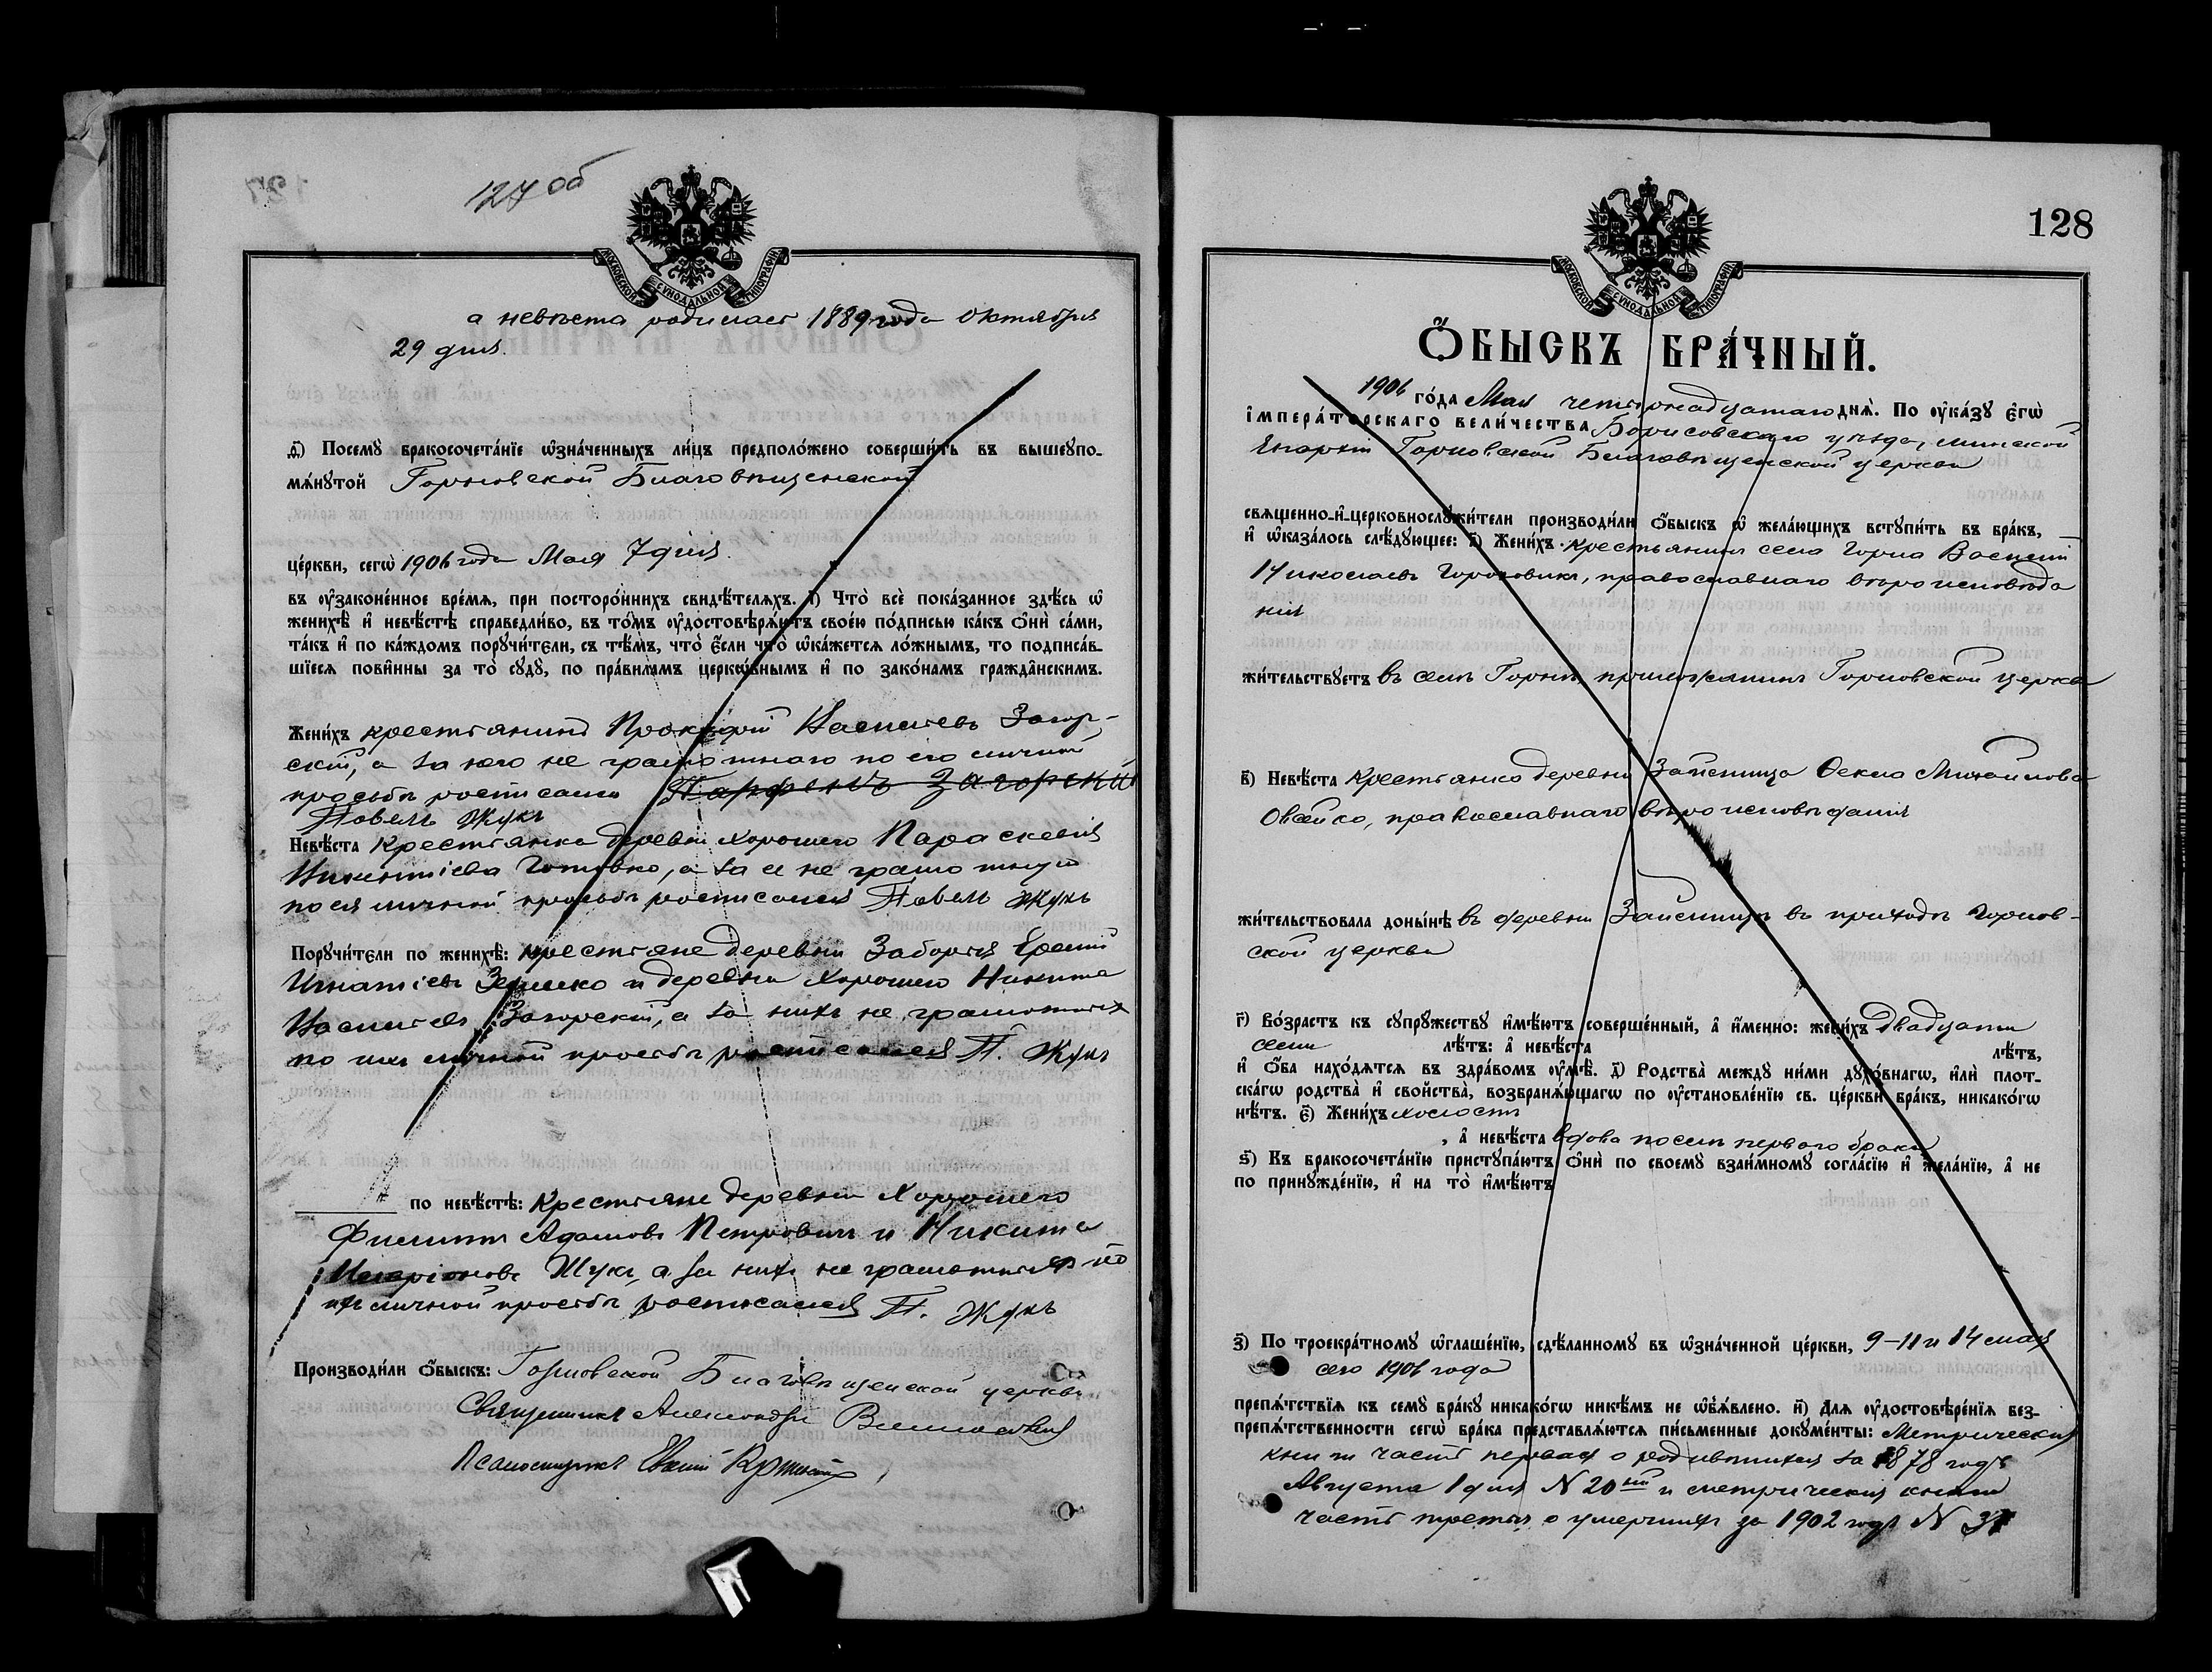 127 об
МОСКОВСКОЙ СѴНОДАЛЬНОЙ ТИПОГРАФІИ
а невѣста родилась 1889 года Октября
29 дня.
Посемꙋ бракосочета́нїе ѡ҆зна́ченныхъ ли́цъ предполо́жено соверши́ть въ вышеупо-
мѧ́нꙋтой Горновской Благовѣщенской
це́ркви, сегѡ̀ 1906 года Мая 7 дня.
въ ᲂу҆законе́нное вре́мѧ, при посторо́ннихъ свидѣ́телѧхъ. і҃) Что̀ всѐ пока́занное здѣ́сь ѡ҆
женихѣ̀ и҆ невѣ́стѣ справедли́во, въ то́мъ ᲂу҆достовѣрѧ́ютъ свое́ю по́дписью ка́къ ѻ҆нѝ са́ми,
та́къ и҆ по ка́ждомъ порꙋчи́тели, съ тѣ́мъ, что̀ є҆́сли что̀ ѡ҆ка́жется ло́жнымъ, то подписа́в-
шїеся пови́нны за то̀ сꙋдꙋ̀, по пра́виламъ церко́внымъ и҆ по зако́намъ гражда́нскимъ.
Жени́хъ крестьянинъ Прокофій Васильевъ Загор-
скій, а за него не грамотнаго по его личной
просьбѣ росписался Парфенъ Загорскій
Павелъ Жукъ
Невѣ́ста крестьянка деревни Хорошего Параскевія
Викентіева Готовко, а за ее не грамотную
по ея личной просьбѣ росписался Павелъ Жукъ
Порꙋчи́тели по женихѣ̀: крестьяне деревни Заборья
Игнатіевъ и деревни Хорошего Никита
Васильевъ Загорскій, а за нихъ не грамотныхъ
по ихъ личной просьбѣ росписался П. Жукъ
по невѣ́стѣ: крестьяне деревни Хорошего
Филиппъ Адамовъ Петровичъ и Никита
Иларіоновъ Жукъ, а за нихъ не грамотныхъ по
ихъ личной просьбѣ росписался П. Жукъ
Производи́ли ѻ҆́быскъ: Горновской Благовѣщенской церкви
Священникъ Александръ
Псаломщикъ
128
МОСКОВСКОЙ СѴНОДАЛЬНОЙ ТИПОГРАФІИ
Ѻ҆́БЫСКЪ БРА́ЧНЫЙ.
1906 го́да Мая четырнадцатаго днѧ̀. По ᲂу҆ка́зꙋ є҆гѡ̀
і҆мпера́торскаго вели́чества Борисовскаго уѣзда, Минской
Епархіи Горновской Благовѣщенской церкви
свѧщенно-и҆-церковнослꙋжи́тели производи́ли ѻ҆́быскъ ѡ҆ жела́ющихъ вступи́ть въ бра́къ,
и҆ ѡ҆каза́лось слѣ́дꙋющее: а҃) Жени́хъ крестьянинъ села Горна Василій
Николаевъ Гороховикъ, православнаго вѣроисповѣда
нія
жи́тельствꙋетъ въ селѣ Горнѣ, прихожанинъ Горновской церкви
в҃) Невѣ́ста крестьянка деревни Займища Ѳекла Михайлова
Овсейко, православнаго вѣроисповѣданія
жи́тельствовала доны́нѣ въ деревни Займищѣ въ приходѣ Горнов-
ской церкви
г҃) Во́зрастъ къ сꙋпрꙋ́жествꙋ и҆мѣ́ютъ соверше́нный, а҆ и҆́менно: жени́хъ двадцати
семи лѣ́тъ: а҆ невѣ́ста лѣ́тъ,
и҆ ѻ҆́ба нахо́дѧтся въ здра́вомъ ᲂу҆мѣ̀. д҃) Родства̀ междꙋ ни́ми дꙋхо́внагѡ, и҆лѝ плот-
ска́гѡ родства̀ и҆ сво́йства, возбранѧ́ющагѡ по ᲂу҆становле́нїю св. це́ркви бра́къ, никако́гѡ
нѣ́тъ. є҃) Жени́хъ холостъ
, а҆ невѣ́ста вдова послѣ перваго брака
ѕ҃) Къ бракосочета́нїю пристꙋпа́ютъ ѻ҆нѝ по своемꙋ̀ взаи́мномꙋ согла́сїю и҆ жела́нїю, а҆ не
по принꙋжде́нїю, и҆ на то̀ и҆мѣ́ютъ
з҃) По троекра́тномꙋ ѡ҆глаше́нїю, сдѣ́ланномꙋ въ ѡ҆зна́ченной це́ркви, 9-11 и 14 мая
сего 1906 года
препѧ́тствїѧ къ семꙋ̀ бра́кꙋ никако́гѡ никѣ́мъ не ѡ҆б̾ѧ́влено. и҃) Для ᲂу҆достовѣре́нїѧ без-
препѧ́тственности сегѡ̀ бра́ка представлѧ́ются пи́сьменные докꙋме́нты: Метрическія
книги часть первая о родившихся за 1878 годъ
Августа 1 дня N 20ый и метрическія книги
часть третья о умершихъ за 1902 годъ N